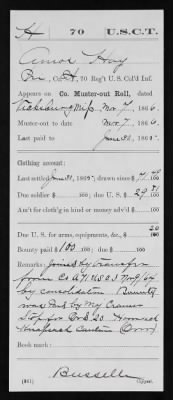 H 70 U.S.C.T.
Amos Hay
Co. H, 70 Reg't U. S. Col'd Inf.
Appears on Co. Muster-out Roll, dated
Vicksburg Miss. Mar. 7, 1866
Muster-out to date Mar. 7, 1866
Last paid to June 30, 1865
Clothing account:
Last settled June 30, 1865; drawn since $
Due soldier $ ; due U. S. $ 29
Am't for cloth'g in kind or money adv'd $
Due U. S. for arms, equipments, &c., $
Bounty paid $100; due $
Remarks: Joined by transfer
from Co A 71 USCI Nov 9/64
by consolidation. Bounty
was Paid by Maj
Stop for
Knapsack Canteen
Book mark:
Bussell
(861) Copyist.